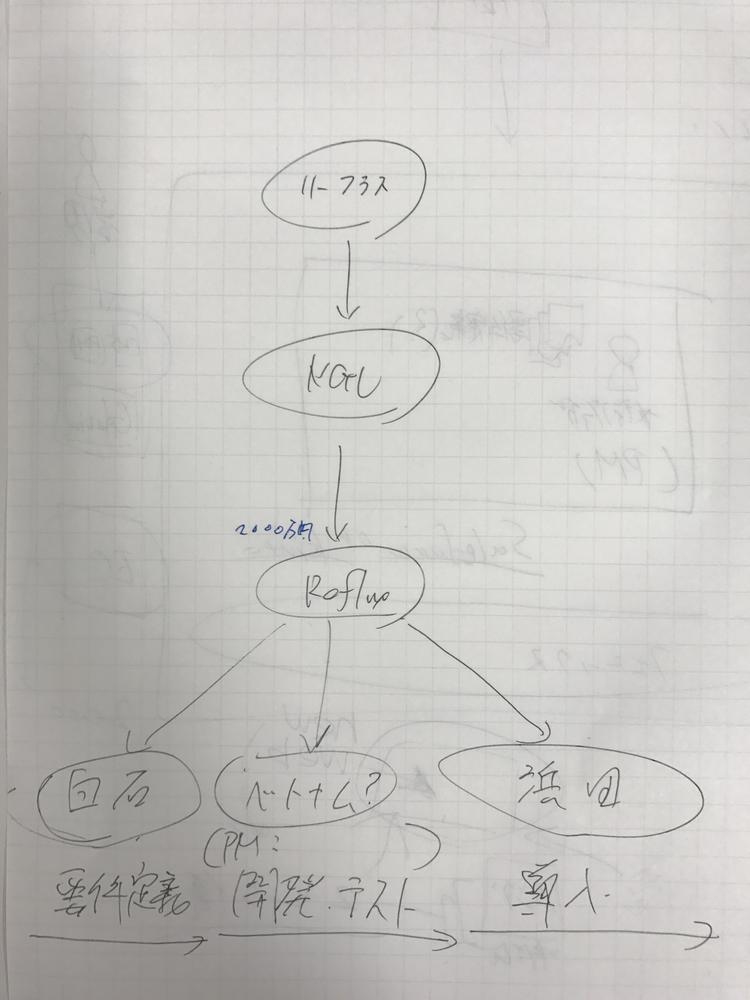 リープラス
NGU
2000万円
Roflux
白石
ベトナム?
浜田
(PM: )
要件定義
開発.テスト
導入.